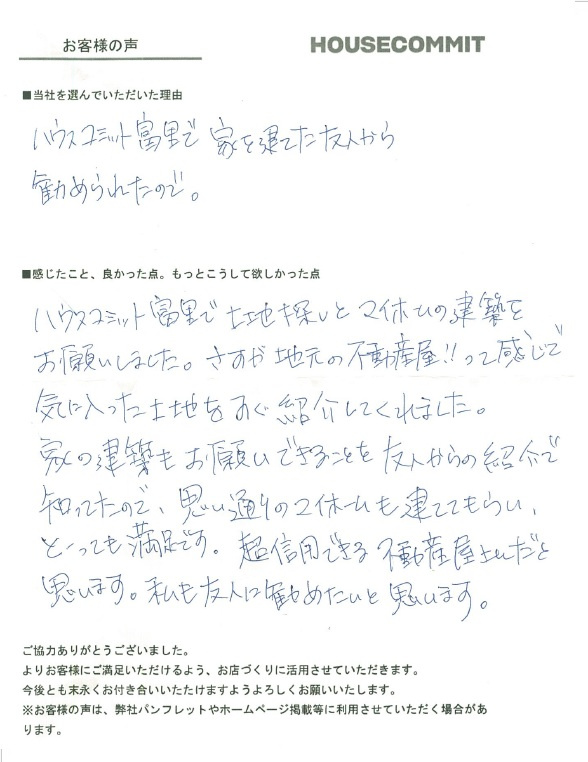 お客様の声
HOUSECOMMIT
■当社を選んでいただいた理由
ハウスコミット富里で 家を建てた友人から
勧められたので。
■感じたこと、良かった点。もっとこうして欲しかった点
ハウスコミット富里で土地探しとマイホームの建築を
お願いしました。さすが地元の不動産屋!!って感じで
気に入った土地をすぐ紹介してくれました。
家の建築もお願いできることを友人からの紹介で
知ってたので、思い通りのマイホームも建ててもらい、
と〜っても満足です。超信用できる不動産屋さんだと
思います。私も友人に勧めたいと思います。
ご協力ありがとうございました。
よりお客様にご満足いただけるよう、お店づくりに活用させていただきます。
今後とも末永くお付き合いいたたけますようよろしくお願いいたします。
※お客様の声は、弊社パンフレットやホームページ掲載等に利用させていただく場合があ
ります。